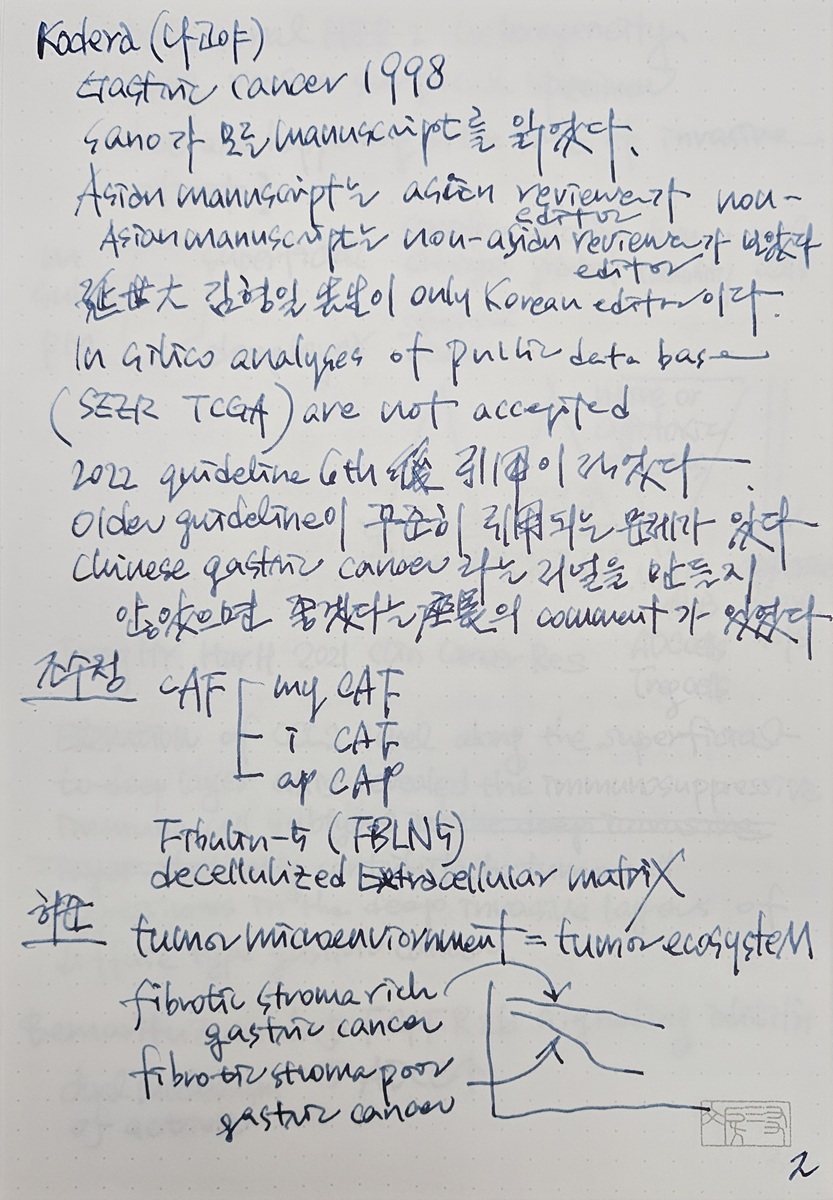 Kodera (나고야)
Gastric cancer 1998
Sano가 모든 manuscript를 읽었다.
Asian manuscript는 asian reviewer가 non-
editor
Asian manuscript는 non-asian reviewer가 보았다
editor
延世大 김형일 先生이 only Korean editor이다.
In silico analyses of public data base
(SEER TCGA) are not accepted
2022 guideline 6th 後 引用이 되었다.
Older guideline이 꾸준히 引用되는 문제가 있다
Chinese gastric cancer 라는 저널을 만들지
않았으면 좋겠다는 座長의 comment가 있었다
조수정 CAF my CAF
i CAF
ap CAF
Fibulin-5 (FBLN5)
decellulized Extracellular matrix
허훈 tumor microenviornment = tumor ecosysteM
fibrotic stroma rich
gastric cancer
fibrotic stroma poor
gastric cancer
2